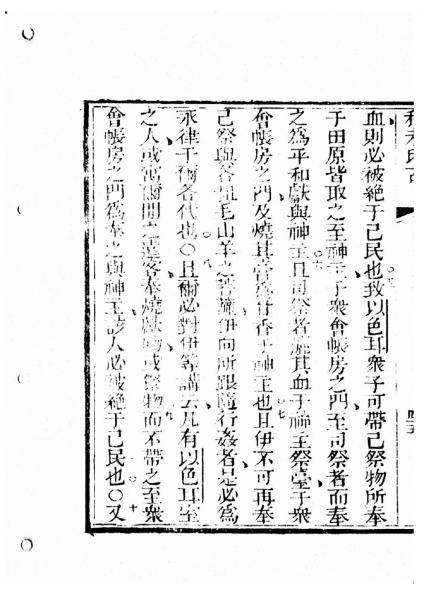 血則必被絕于己民也致以色耳衆子可帶己祭物所奉
于田原皆取之至神主于衆會帳房之門至司祭者而奉
之爲平和獻與神主且司祭者灑其血于神主祭壇于衆
會帳房之門及燒其膏爲甘香于神主也且伊不可再奉
己祭與各粗毛山羊之菩薩伊向所跟隨行姦者是必爲
永律于爾各代也○且爾必對伊等講云凡有以色耳室
之人或寓爾間之遠客奉燒獻物或祭物而不帶之至衆
會帳房之門爲奉之與神主該人必被絕于己民也○又